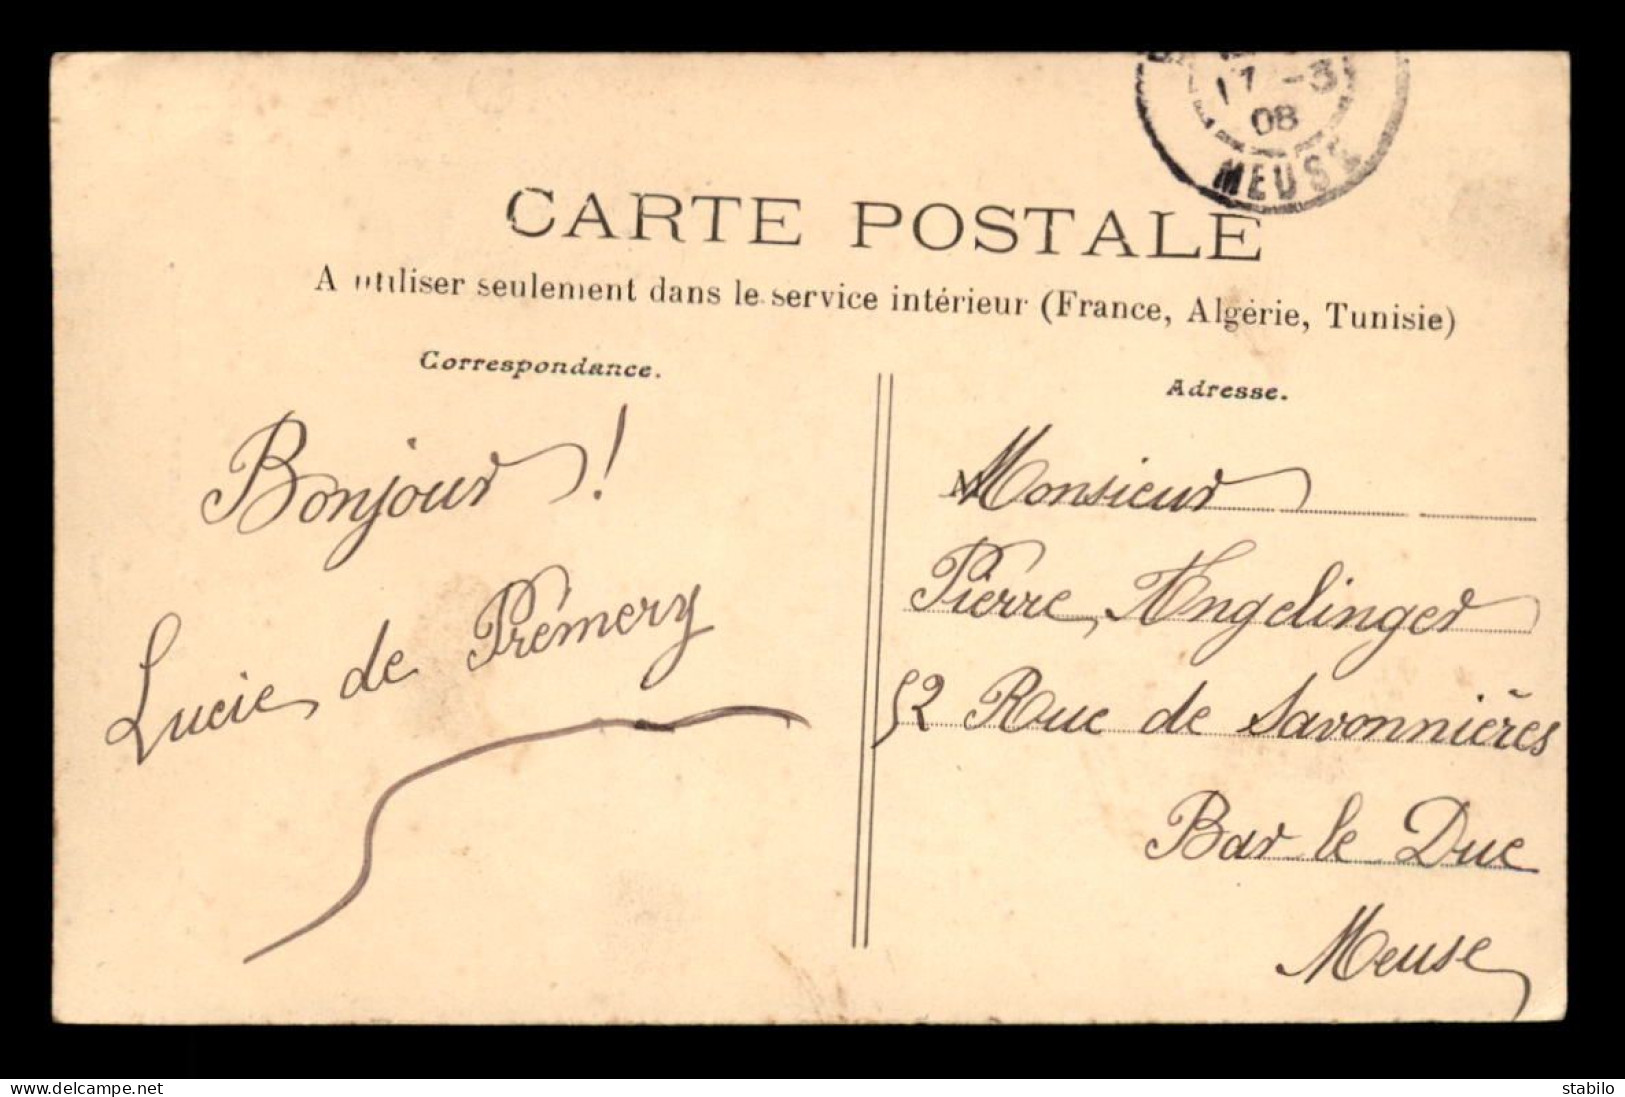 17 -3
08
MEUSE
CARTE POSTALE
A utiliser seulement dans le service intérieur (France, Algérie, Tunisie)
Correspondance.
Bonjour !
Lucie de Prémery
Adresse.
Monsieur
Pierre Angelinger
52 Rue de Savonnières
Bar le Duc
Meuse
delcampe.net
stabilo